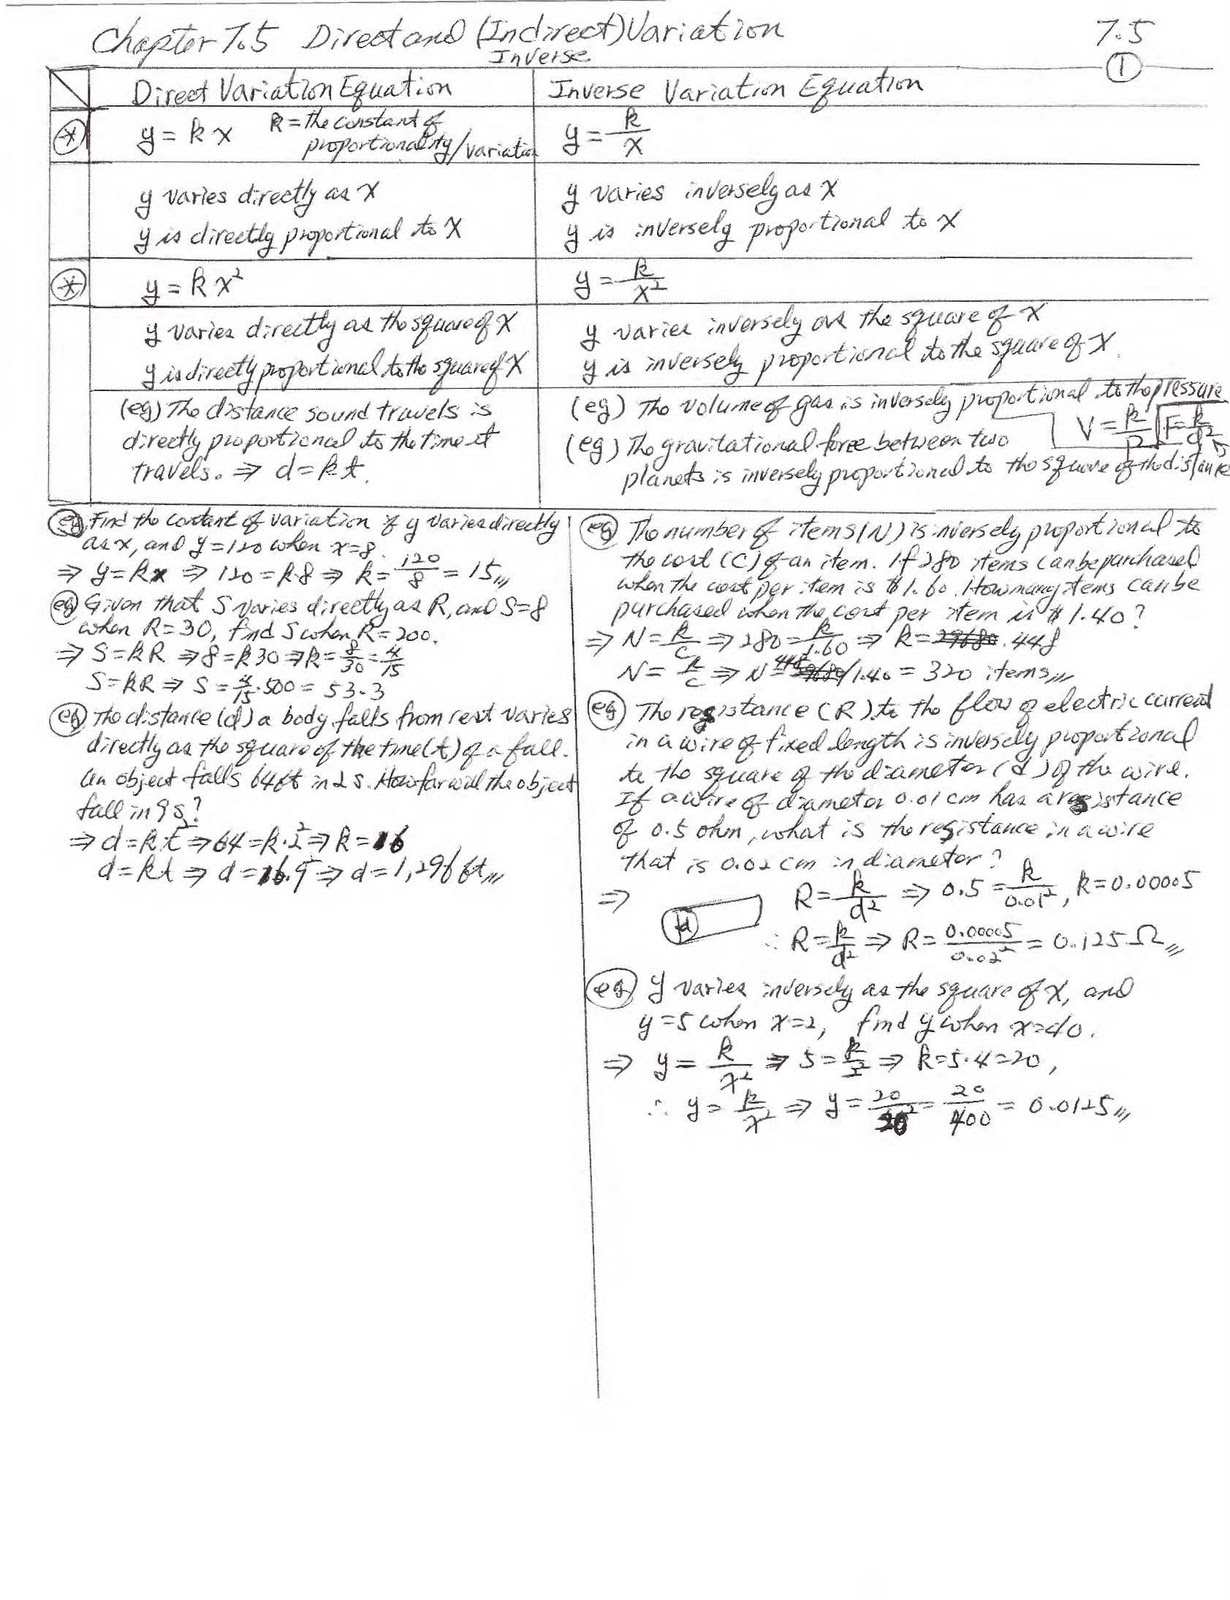 Chapter 7.5 Direct and (Indirect) Variation
Inverse
7.5
1
Direct Variation Equation
Inverse Variation Equation
* y = kx k = the constant of
proportionality/variation
y = k/x
y varies directly as x
y is directly proportional to x
y varies inversely as x
y is inversely proportional to x
* y = kx²
y = k/x²
y varies directly as the square of x
y is directly proportional to the square of x
y varies inversely as the square of x
y is inversely proportional to the square of x.
(eg) The distance sound travels is
directly proportional to the time it
travels. ⇒ d = kt.
(eg) The volume of gas is inversely proportional to the pressure
V = k/P F = k/d²
(eg) The gravitational force between two
planets is inversely proportional to the square of the distance
eg Find the constant of variation if y varies directly
as x, and y = 120 when x = 8.
⇒ y = kx ⇒ 120 = k·8 ⇒ k = 120/8 = 15
eg Given that S varies directly as R, and S = 8
when R = 30, find S when R = 200.
⇒ S = kR ⇒ 8 = k30 ⇒ k = 8/30 = 4/15
S = kR ⇒ S = 4/15 · 500 = 53.3
eg The distance (d) a body falls from rest varies
directly as the square of the time (t) of a fall.
An object falls 64ft in 2s. How far will the object
fall in 9s?
⇒ d = kt² ⇒ 64 = k·2² ⇒ k = 16
d = kt ⇒ d = 16·9² ⇒ d = 1,296 ft
eg The number of items (N) is inversely proportional to
the cost (C) of an item. If 280 items can be purchased
when the cost per item is $1.60. How many items can be
purchased when the cost per item is $1.40?
⇒ N = k/C ⇒ 280 = k/1.60 ⇒ k = 448
N = k/C ⇒ N = 448/1.40 = 320 items
eg The resistance (R) to the flow of electric current
in a wire of fixed length is inversely proportional
to the square of the diameter (d) of the wire.
If a wire of diameter 0.01 cm has a resistance
of 0.5 ohm, what is the resistance in a wire
that is 0.02 cm in diameter?
⇒ d R = k/d² ⇒ 0.5 = k/0.01², k = 0.00005
∴ R = k/d² ⇒ R = 0.00005/0.02² = 0.125 Ω
eg y varies inversely as the square of x, and
y = 5 when x = 2, find y when x = 40.
⇒ y = k/x² ⇒ 5 = k/2² ⇒ k = 5·4 = 20,
∴ y = k/x² ⇒ y = 20/20² = 20/400 = 0.0125